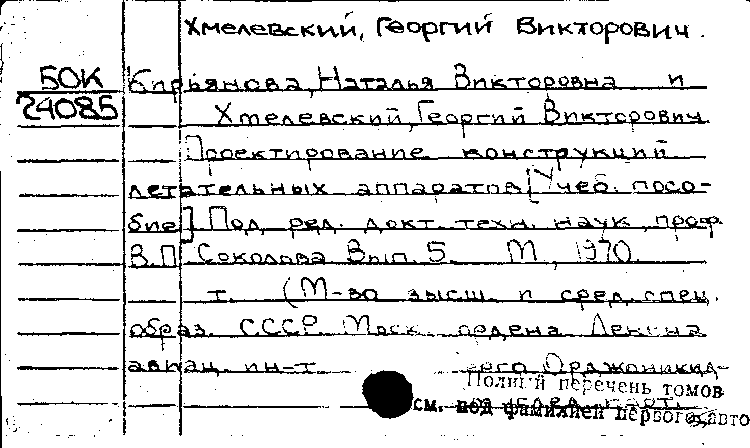 Хмелевский, Георгий Викторович.
БОК
24085
Кирьянова, Наталья Викторовна и
Хмелевский, Георгий Викторович.
Проектирование конструкций
летательных аппаратов [Учеб. посо-
бие]. Под ред. докт. техн. наук, проф.
В.П. Соколова Вып. 5. М., 1970.
т. (М-во высш. и сред. спец.
образ. СССР. Моск. ордена Ленина
авиац. ин-т Орджоникид-
Полный перечень томов
см. под фамилией первого авто